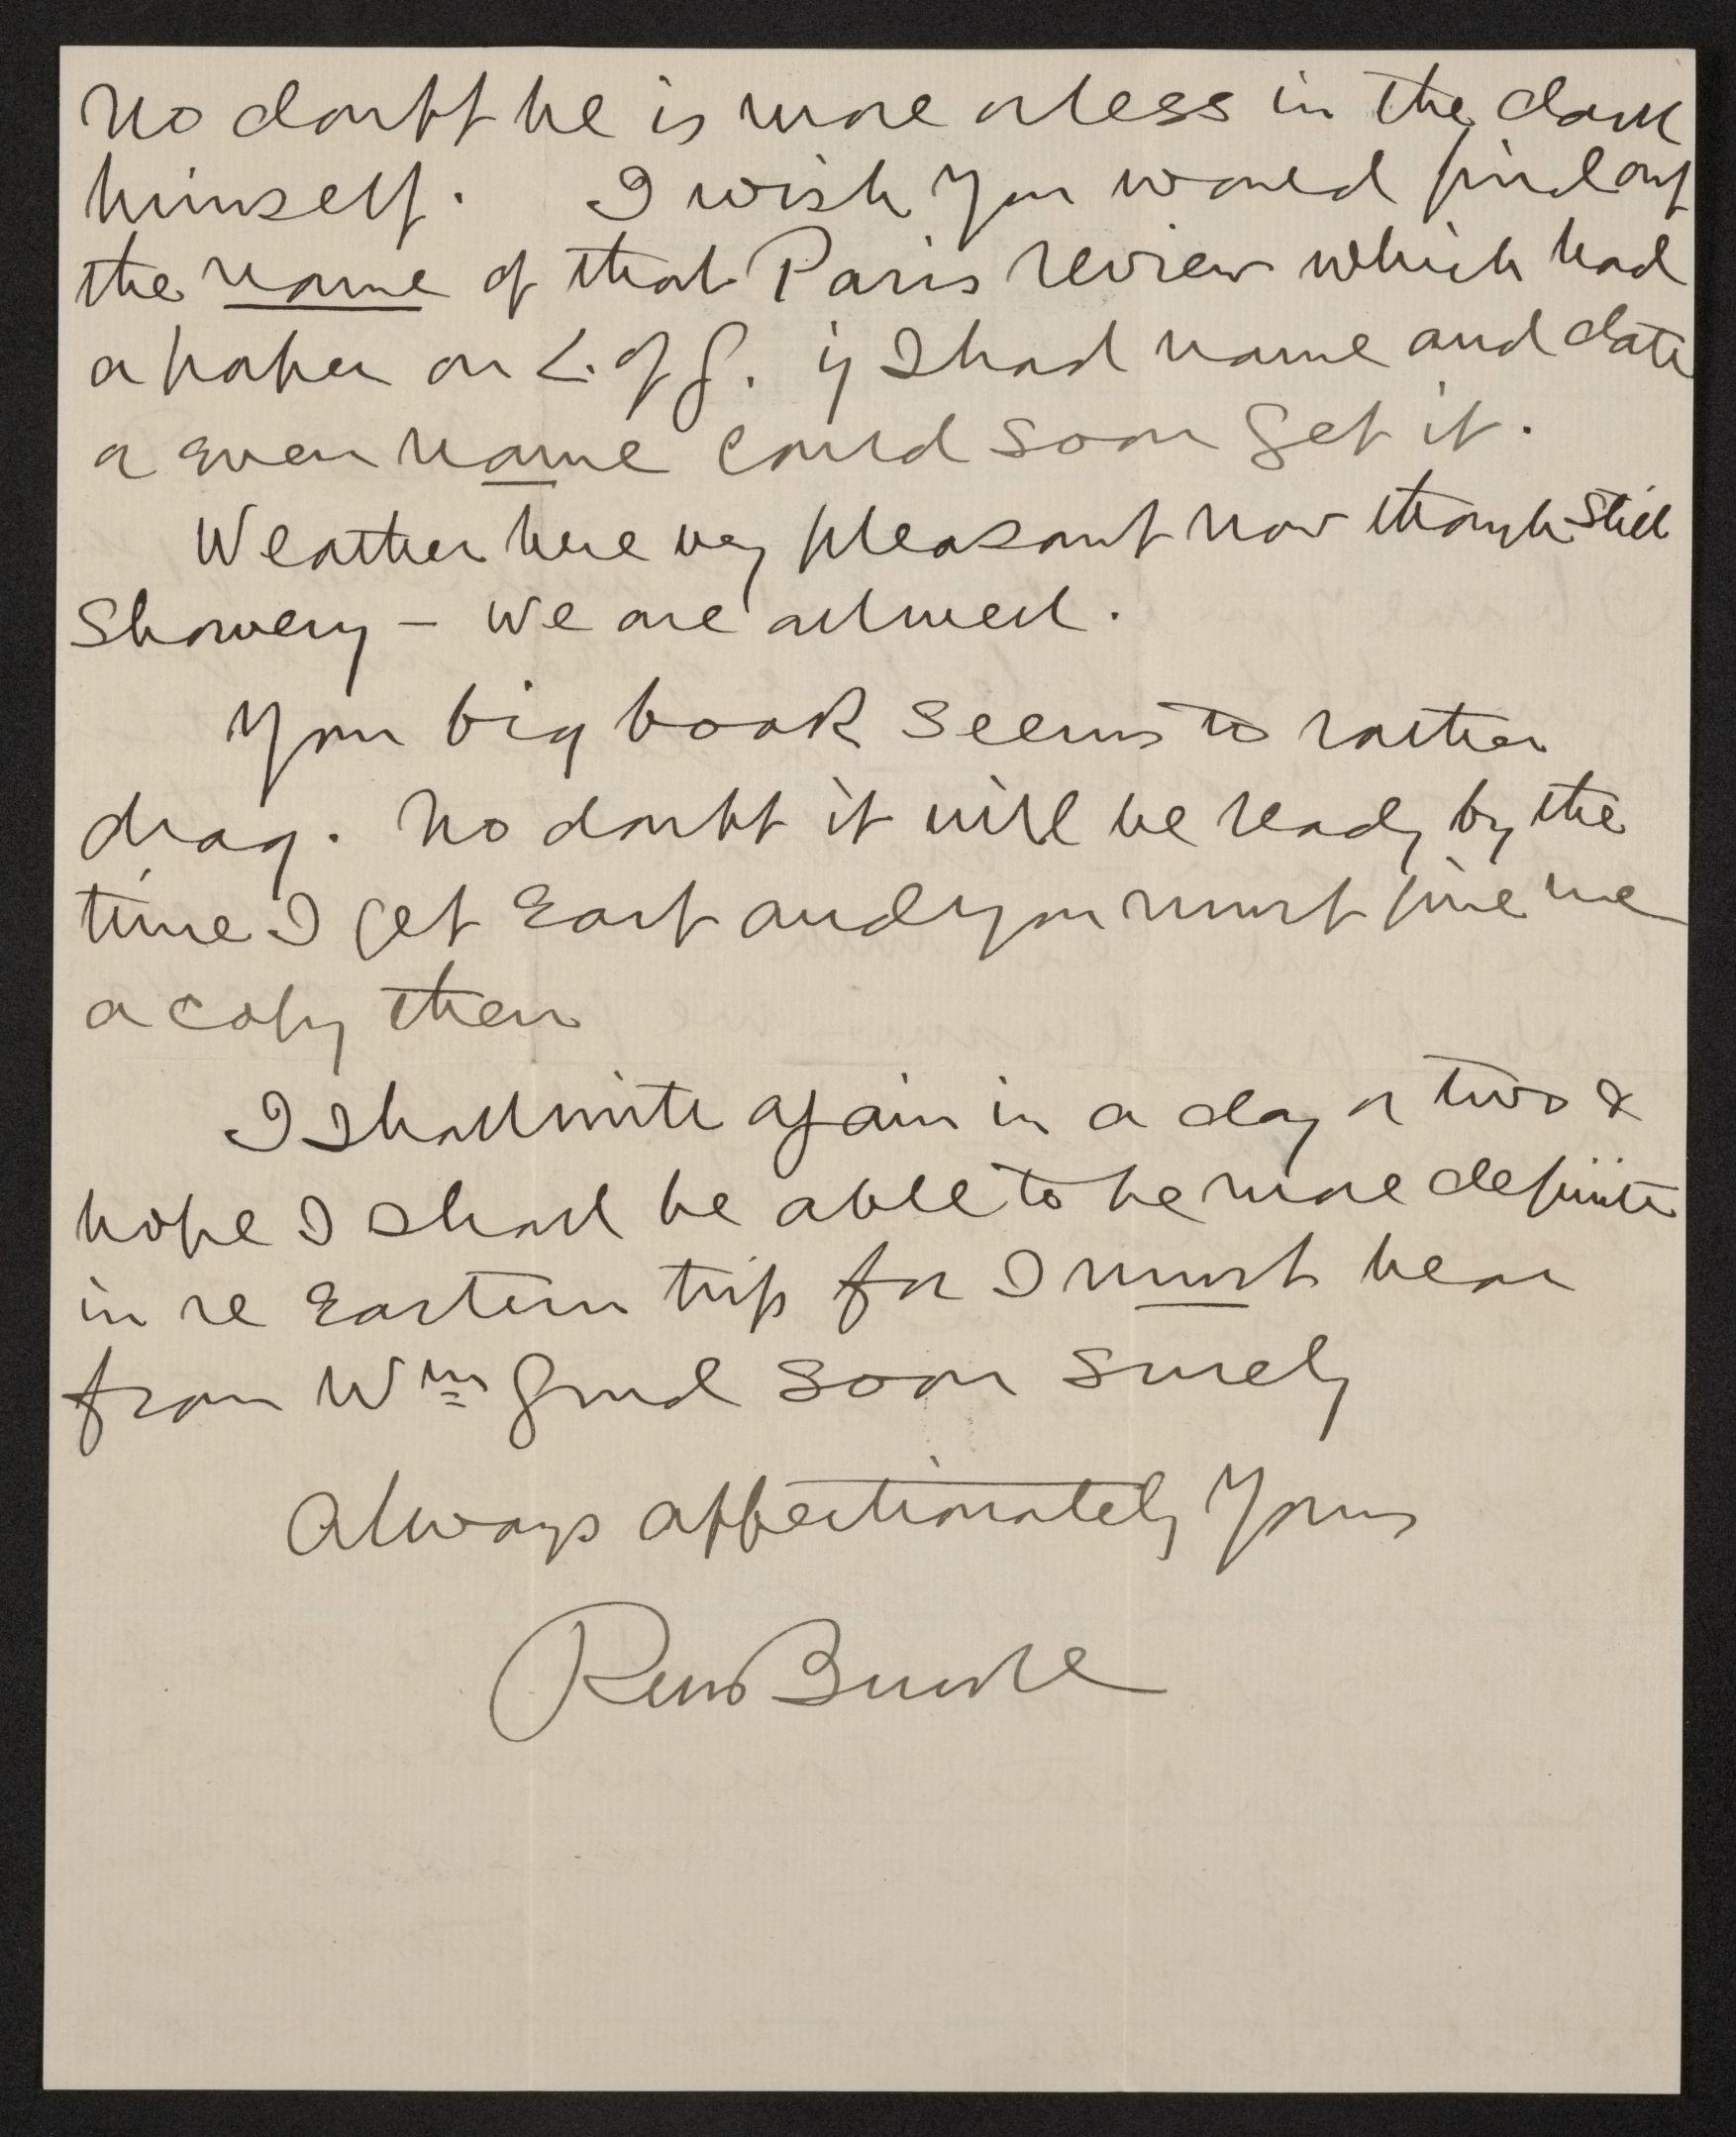 No doubt he is more or less in the dark
himself. I wish you would find out
the name of that Paris review which had
a paper on L. of G. if I had name and date
or even name could soon get it.
Weather here very pleasant now though still
showery – we are all well.
Your big book seems to rather
drag. No doubt it will be ready by the
time I get East and you must give me
a copy then
I shall write again in a day or two &
hope I shall be able to be more definite
in re Eastern trip for I must hear
from Wm Gurd soon surely
Always affectionately Yours
RM Bucke